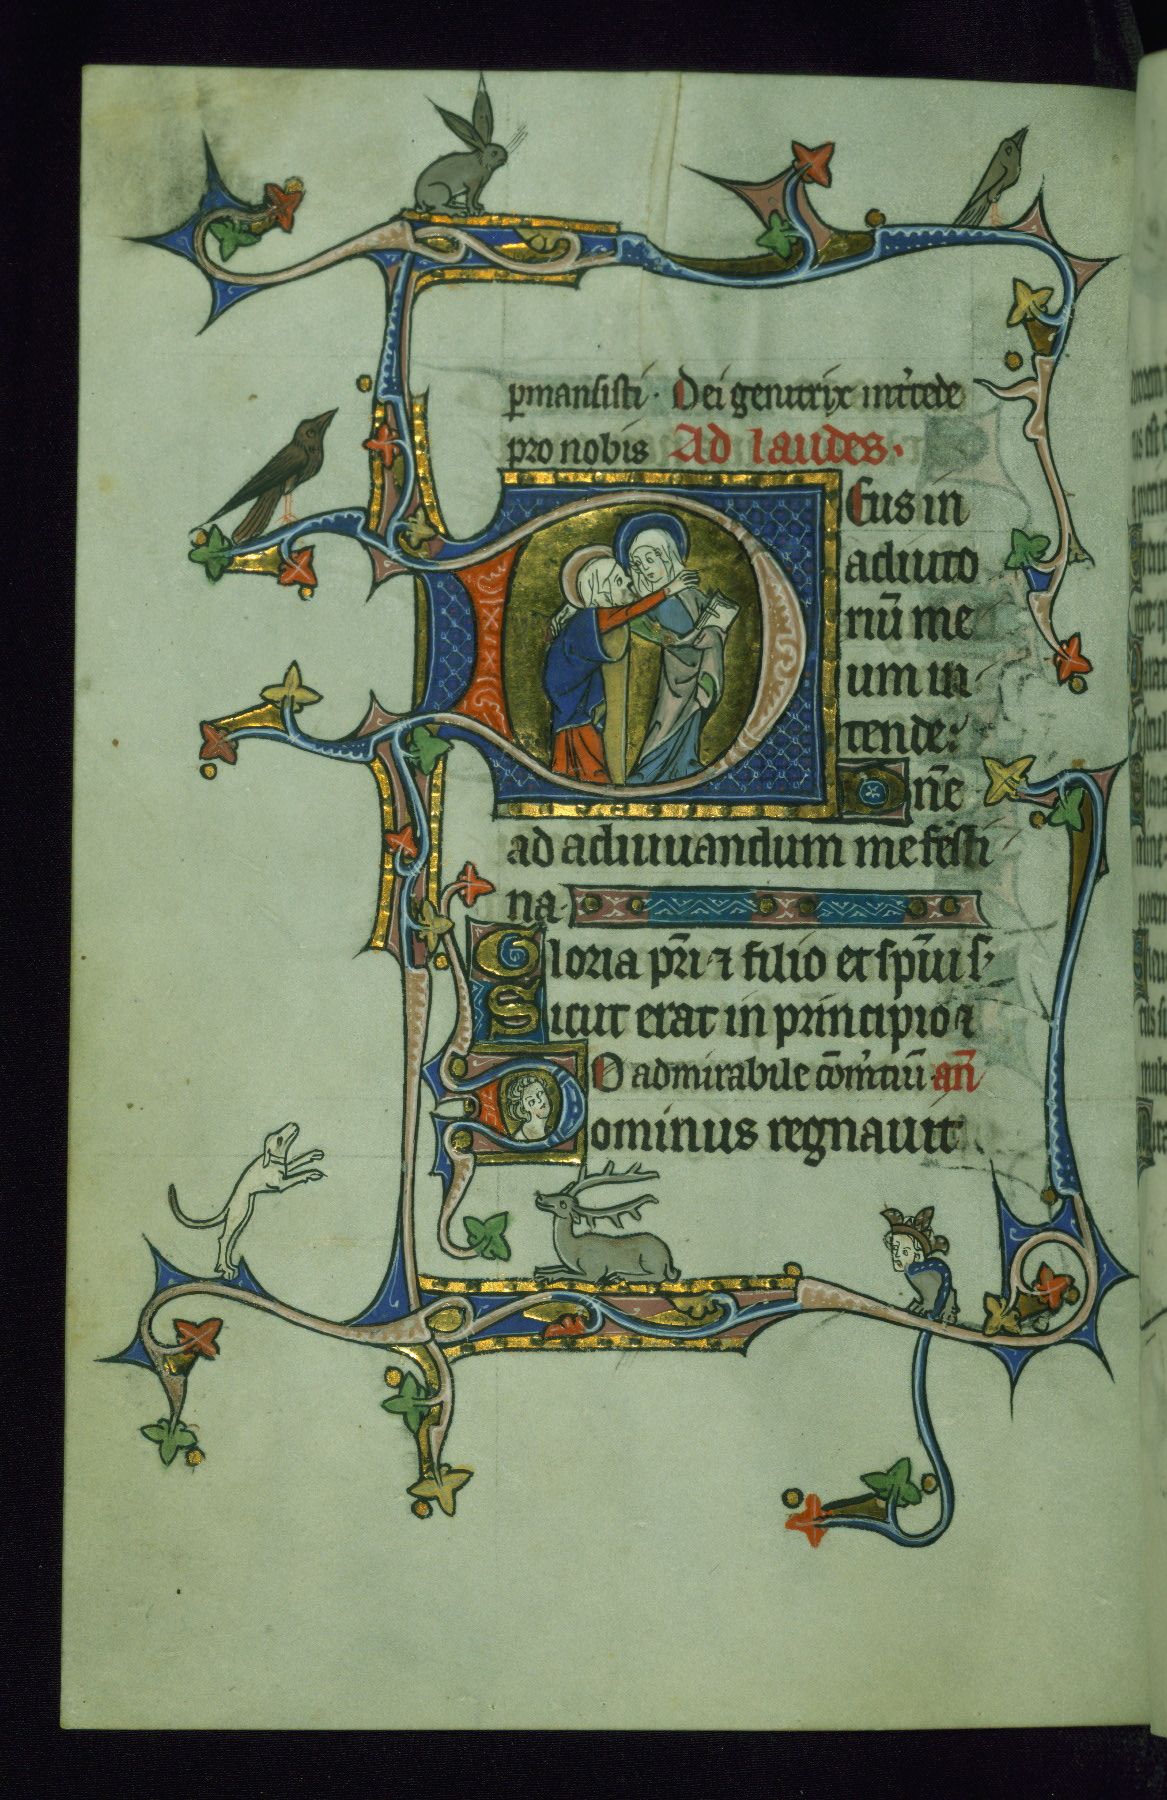 p̱mansisti · Dei genitrix int̉cede
pro nobis Ad laudes ·
Deus in
adiuto
riū me
um in
tende:
Dn̄e
ad adiuuandum me festi
na
Gloria pr̄i ⁊ filio et spūi s·
Sicut erat in principio ⁊
O admirabile com̄ciū an̄
Dominus regnauit